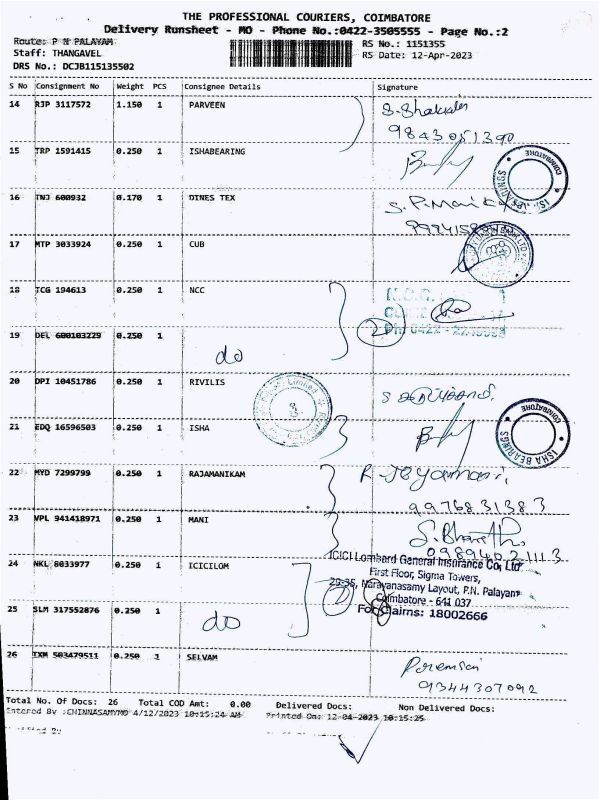 THE PROFESSIONAL COURIERS, COIMBATORE
Delivery Runsheet - MO - Phone No.:0422-3505555 - Page No.:2
Route: P N PALAYAM
RS No.: 1151355
Staff: THANGAVEL
RS Date: 12-Apr-2023
DRS No.: DCJB115135502
S No Consignment No Weight PCS Consignee Details Signature
14 RJP 3117572 1.150 1 PARVEEN
9843051390
15 TRP 1591415 0.250 1 ISHABEARING
COIMBATORE
16 TNJ 600932 0.170 1 DINES TEX
17 MTP 3033924 0.250 1 CUB
18 TCG 194613 0.250 1 NCC
19 DEL 600103229 0.250 1
do
20 DPI 10451786 0.250 1 RIVILIS
21 EDQ 16596503 0.250 1 ISHA
COIMBATORE
ISHA BEARINGS
22 MYD 7299799 0.250 1 RAJAMANIKAM
9976831383
23 VPL 941418971 0.250 1 MANI
S. Bharath
09894021113
24 NKL 8033977 0.250 1 ICICILOM
ICICI Lombard General Insurance Co, Ltd
First Floor, Sigma Towers,
Narayanasamy Layout, P.N. Palayam
Coimbatore - 641 037
For Claims: 18002666
25 SLM 317552876 0.250 1
do
26 IXM 503479511 0.250 1 SELVAM
9344307092
Total No. Of Docs: 26 Total COD Amt: 0.00 Delivered Docs: Non Delivered Docs:
Entered By :CHINNASAMYMO 4/12/2023 10:15:24 AM Printed On: 12-04-2023 10:15:25